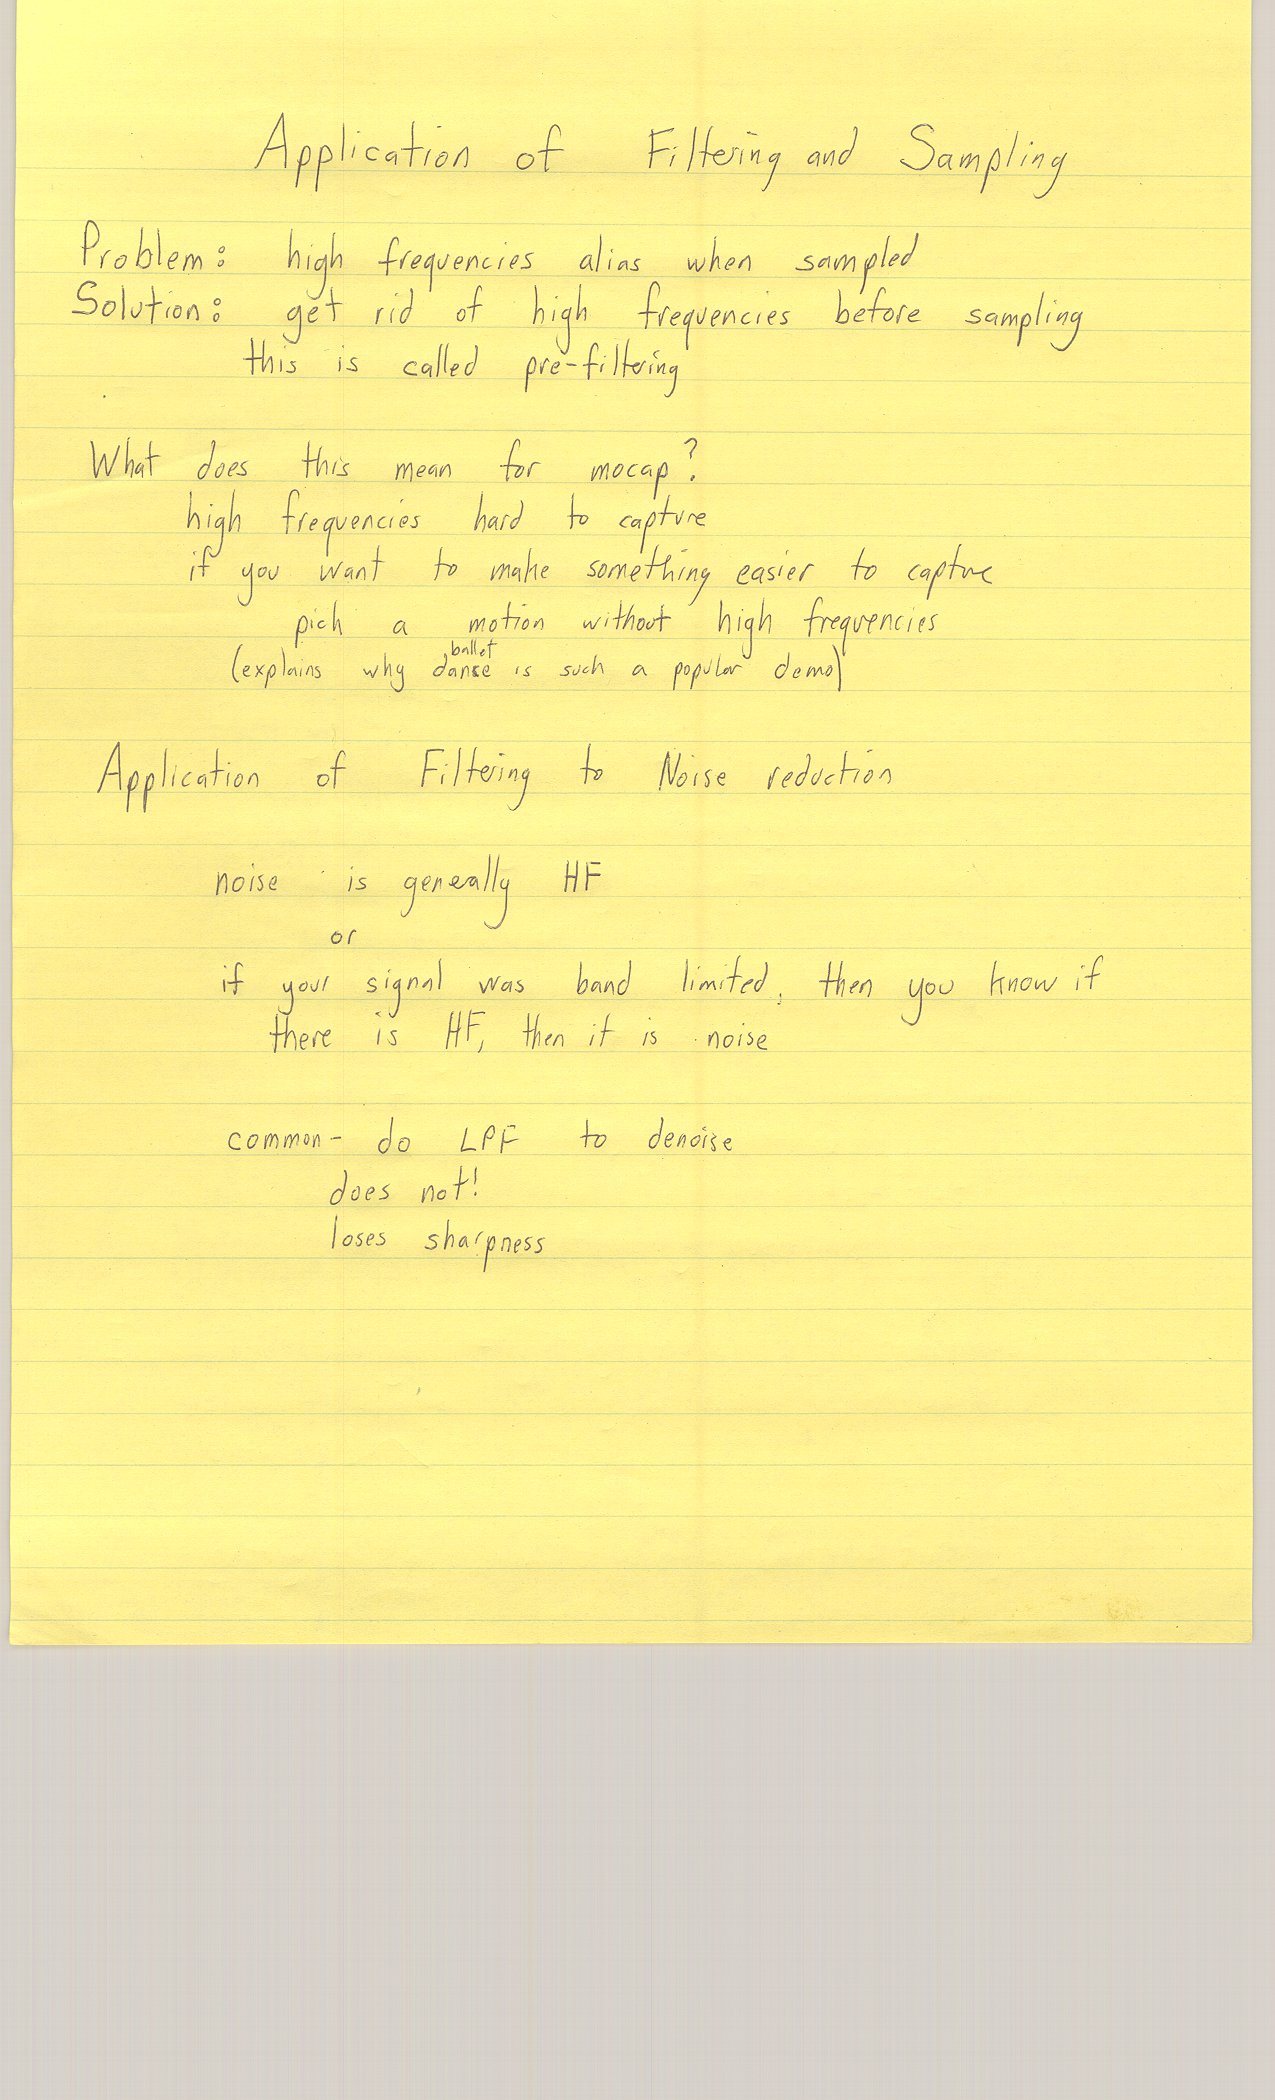 Application of Filtering and Sampling
Problem: high frequencies alias when sampled
Solution: get rid of high frequencies before sampling
this is called pre-filtering
What does this mean for mocap?
high frequencies hard to capture
if you want to make something easier to capture
pick a motion without high frequencies
ballet
(explains why danse is such a popular demo)
Application of Filtering to Noise reduction
noise is generally HF
or
if your signal was band limited, then you know if
there is HF, then it is noise
common - do LPF to denoise
does not!
loses sharpness